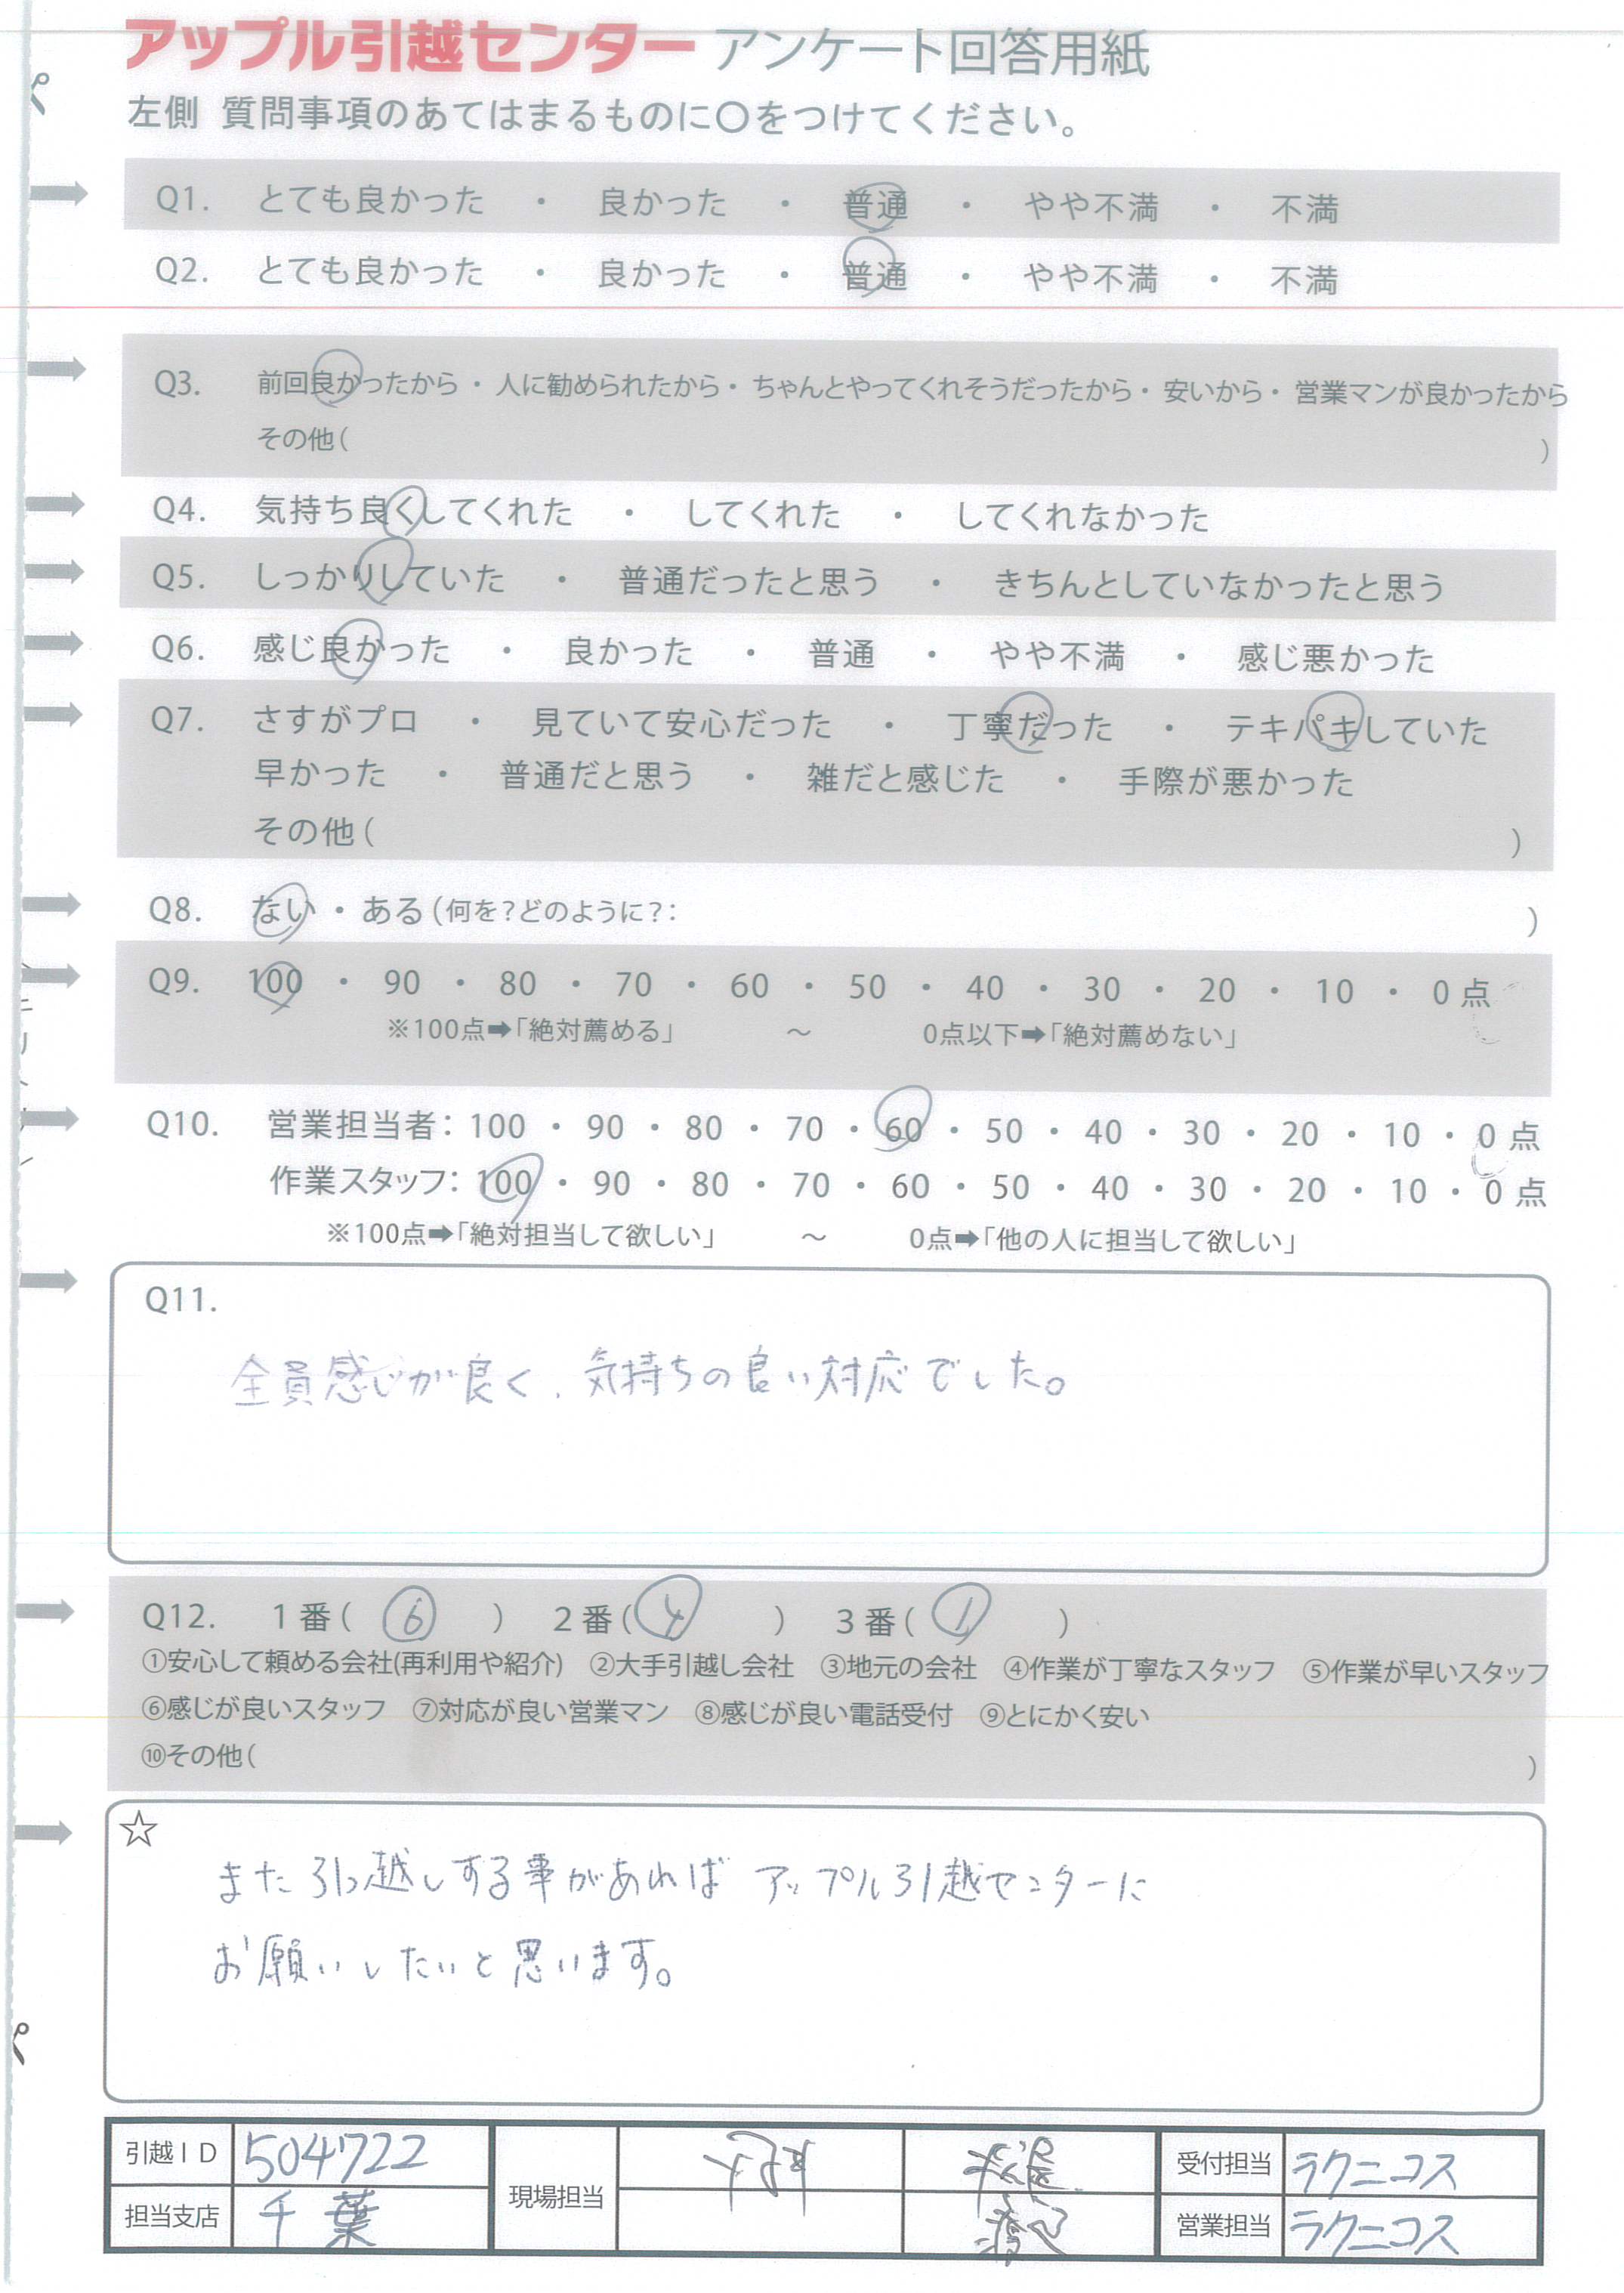 アップル引越センター アンケート回答用紙
左側 質問事項のあてはまるものに〇をつけてください。
Q1. とても良かった ・ 良かった ・ 普通 ・ やや不満 ・ 不満
Q2. とても良かった ・ 良かった ・ 普通 ・ やや不満 ・ 不満
Q3. 前回良かったから ・ 人に勧められたから ・ ちゃんとやってくれそうだったから ・ 安いから ・ 営業マンが良かったから
その他( )
Q4. 気持ち良くしてくれた ・ してくれた ・ してくれなかった
Q5. しっかりしていた ・ 普通だったと思う ・ きちんとしていなかったと思う
Q6. 感じ良かった ・ 良かった ・ 普通 ・ やや不満 ・ 感じ悪かった
Q7. さすがプロ ・ 見ていて安心だった ・ 丁寧だった ・ テキパキしていた
早かった ・ 普通だと思う ・ 雑だと感じた ・ 手際が悪かった
その他( )
Q8. ない ・ ある(何を?どのように?: )
Q9. 100 ・ 90 ・ 80 ・ 70 ・ 60 ・ 50 ・ 40 ・ 30 ・ 20 ・ 10 ・ 0点
※100点➡「絶対薦める」 ～ 0点以下➡「絶対薦めない」
Q10. 営業担当者: 100 ・ 90 ・ 80 ・ 70 ・ 60 ・ 50 ・ 40 ・ 30 ・ 20 ・ 10 ・ 0点
作業スタッフ: 100 ・ 90 ・ 80 ・ 70 ・ 60 ・ 50 ・ 40 ・ 30 ・ 20 ・ 10 ・ 0点
※100点➡「絶対担当して欲しい」 ～ 0点➡「他の人に担当して欲しい」
Q11.
全員感じが良く、気持ちの良い対応でした。
Q12. 1番( ⑥ ) 2番( ④ ) 3番( ① )
①安心して頼める会社(再利用や紹介) ②大手引越し会社 ③地元の会社 ④作業が丁寧なスタッフ ⑤作業が早いスタッフ
⑥感じが良いスタッフ ⑦対応が良い営業マン ⑧感じが良い電話受付 ⑨とにかく安い
⑩その他( )
☆
また引っ越しする事があれば アップル引越センターに
お願いしたいと思います。
引越ID 504722 現場担当 受付担当 ラクニコス
担当支店 千葉 営業担当 ラクニコス